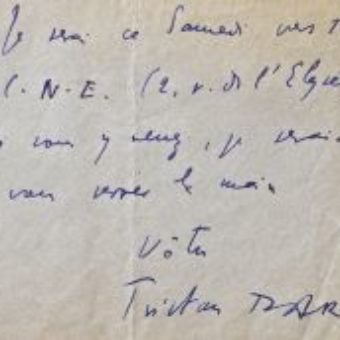 Je serai ce Samedi vers
C.N.E. (2, r. de l'Elysée
vous y venez, je serais
vous serrer la main
Vôtre
Tristan TZAR